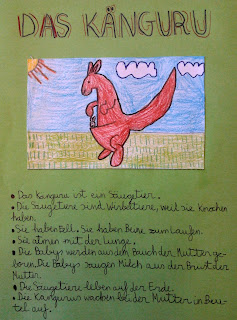 DAS KÄNGURU
Das Känguru ist ein Säugetier.
Die Säugetiere sind Wirbeltiere, weil sie Knochen
haben.
Sie haben Fell. Sie haben Beine zum Laufen.
Sie atmen mit der Lunge.
Die Babys werden aus dem Bauch der Mutter ge-
boren. Die Babys saugen Milch aus der Brust der
Mutter.
Die Säugetiere leben auf der Erde.
Die Kängurus wachsen bei der Mutter in Beu-
tel auf.